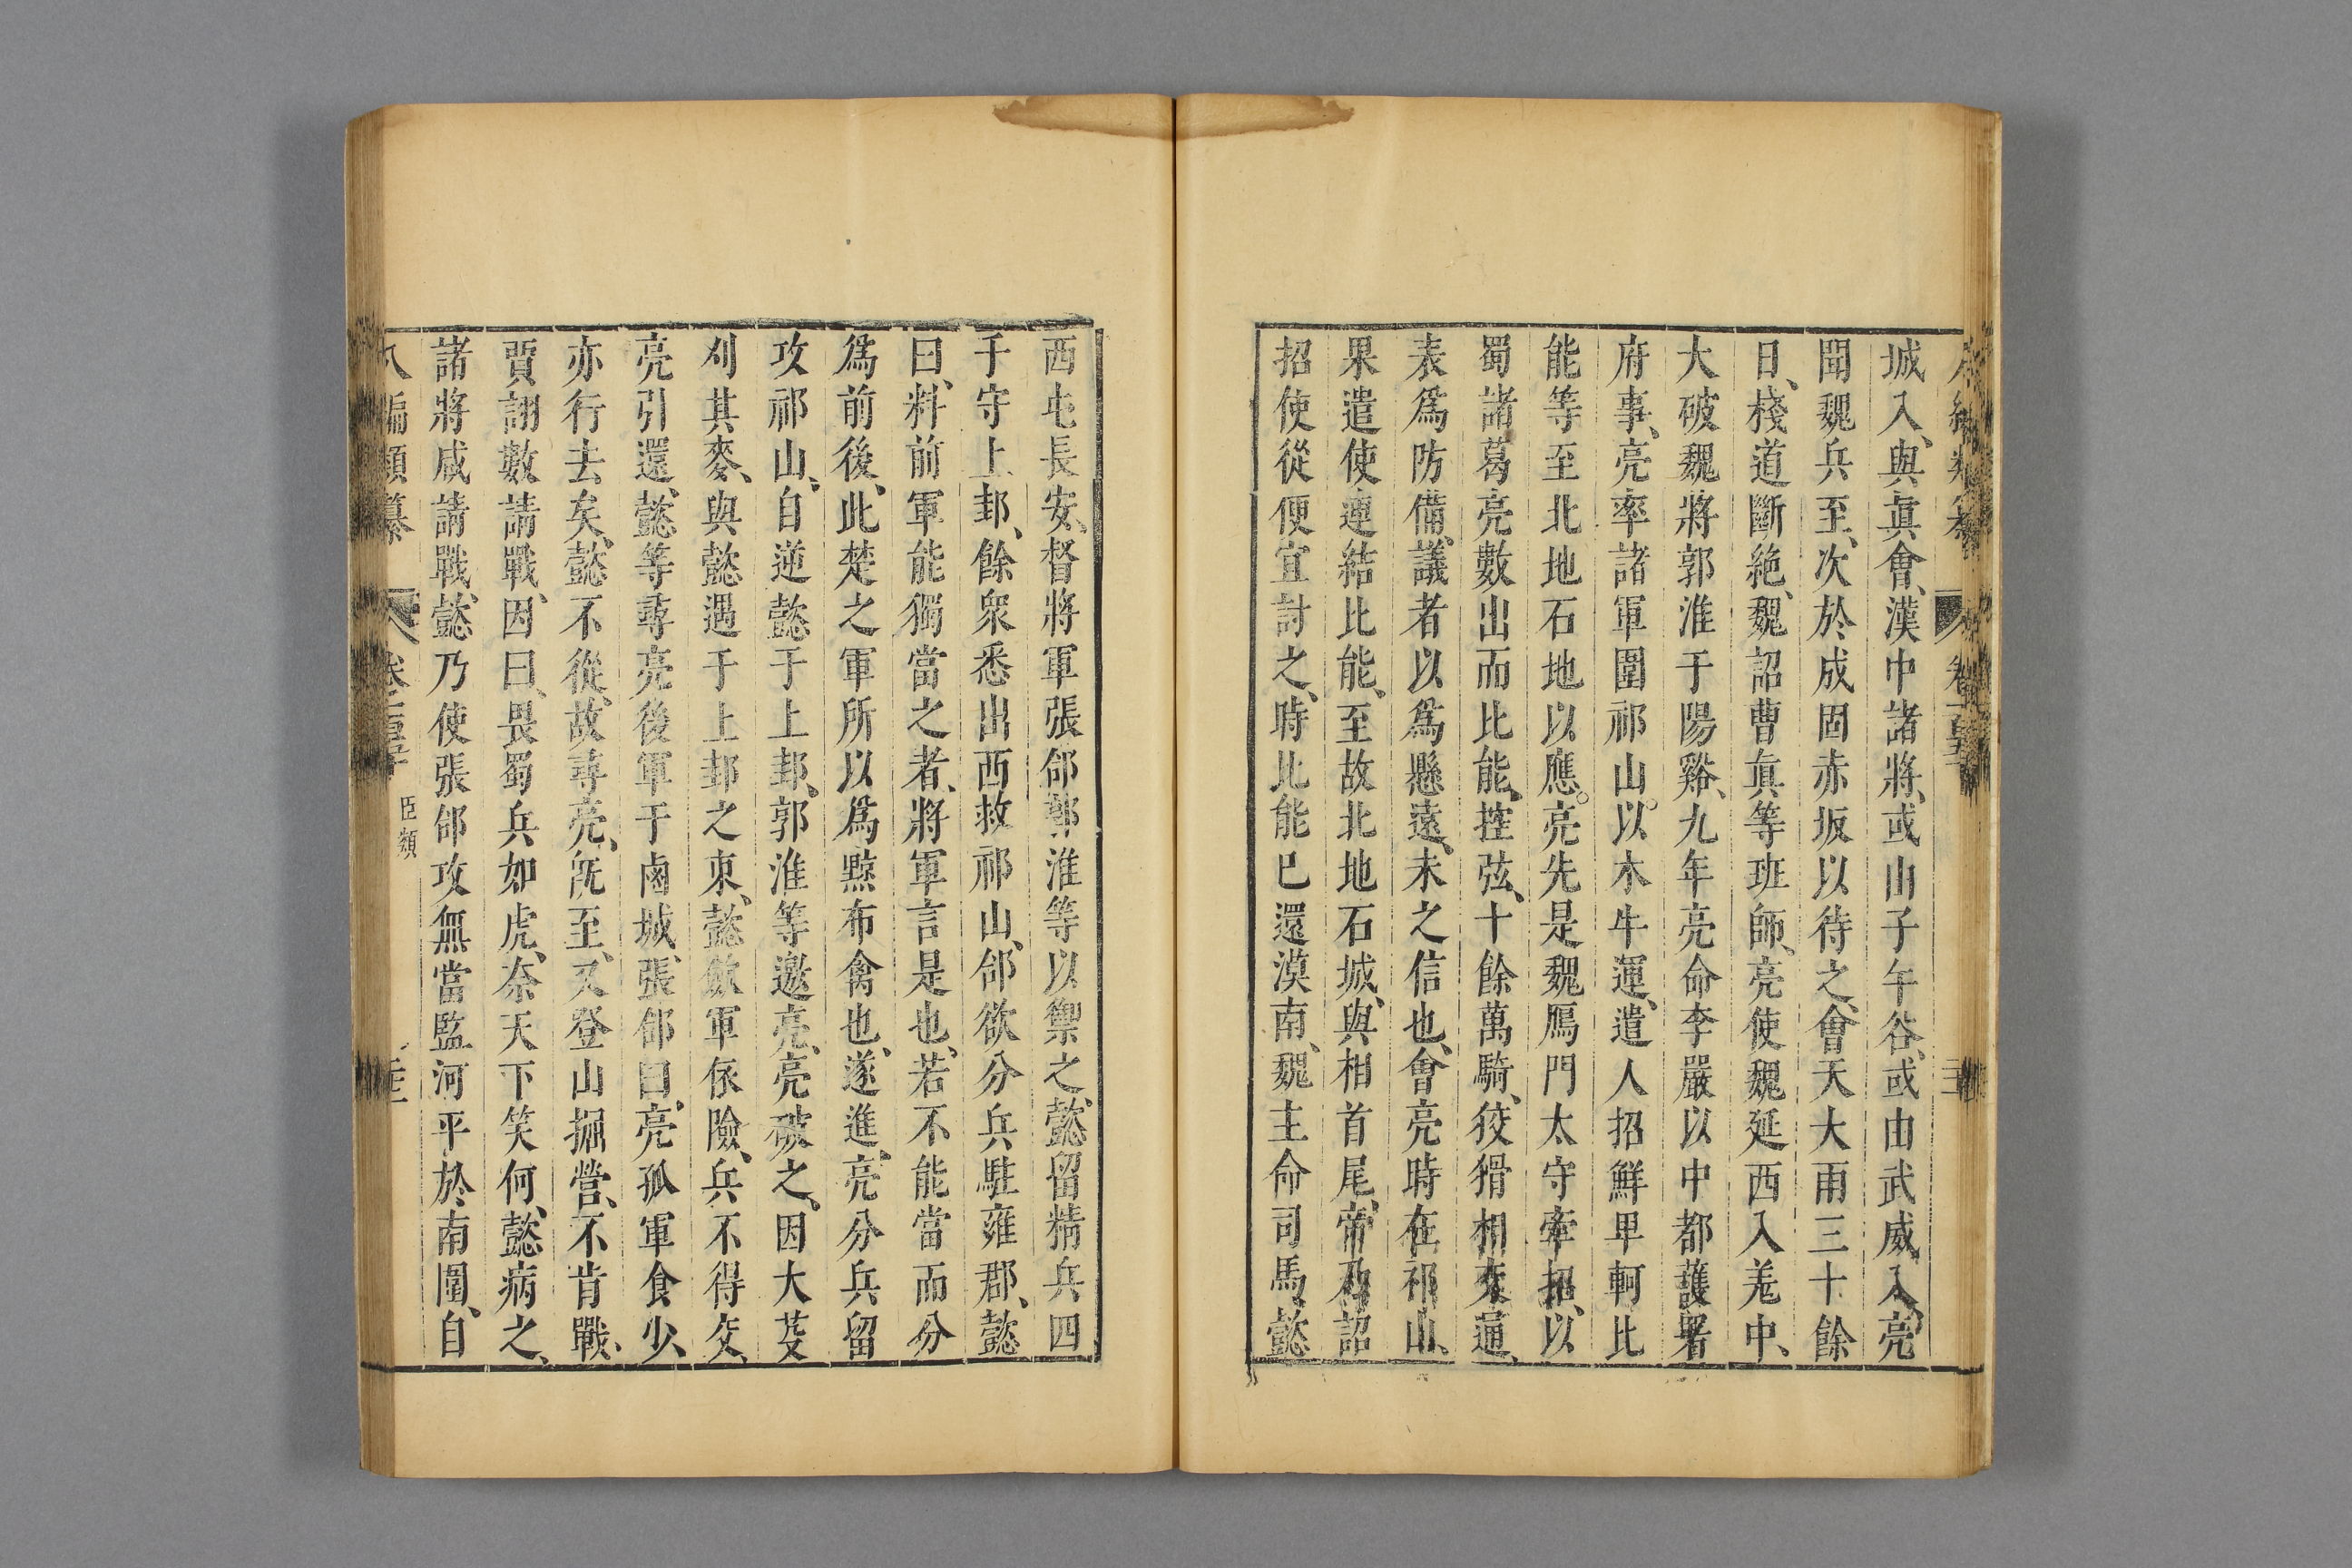 城入、與眞會、漢中諸將、或由子午谷、或由武威入、亮
聞魏兵至、次於成固赤坂以待之、會天大雨三十餘
日、棧道斷絶、魏詔曹眞等班師、亮使魏延西入羌中、
大破魏將郭淮于陽谿、九年亮命李嚴以中都護署
府事、亮率諸軍圍祁山。以木牛運、遣人招鮮卑軻比
能等至北地石地以應。亮先是魏鴈門太守牽招、以
蜀諸葛亮數出而比能、控弦、十餘萬騎、狡猾相交通、
表爲防備、議者以爲懸遠、未之信也、會亮時在祁山、
果遣使連結比能、至故北地石城、與相首尾、帝乃詔
招使從便宜討之、時比能巳還漠南、魏主命司馬懿
西屯長安、督將軍張郃郭淮等以禦之、懿留精兵四
千守上邽、餘衆悉出西救祁山、郃欲分兵駐雍郡、懿
曰、料前軍能獨當之者、將軍言是也、若不能當而分
爲前後、此楚之軍所以爲黥布禽也、遂進、亮分兵留
攻祁山、自逆懿于上邽、郭淮等邀亮、亮破之、因大芟
刈其麥、與懿遇于上邽之東、懿斂軍依險、兵不得交、
亮引還、懿等尋亮後軍于鹵城、張郃曰、亮孤軍食少、
亦行去矣、懿不從、故尋亮、旣至、又登山掘營、不肯戰、
賈詡數請戰、因曰、畏蜀兵如虎、奈天下笑何、懿病之、
諸將咸請戰、懿乃使張郃攻無當監河平於南圍、自
八編類纂
臣類